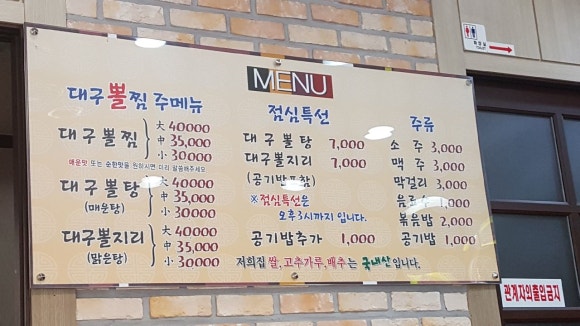 MENU
대구뽈찜 주메뉴
대구뽈찜 大 40000
中 35,000
小 30000
매운맛 또는 순한맛을 원하시면 미리 말씀해주세요
대구뽈탕 大 40000
(매운탕) 中 35,000
小 30000
대구뽈지리 大 40000
(맑은탕) 中 35,000
小 30000
점심특선
대구뽈탕 7,000
대구뽈지리 7,000
(공기밥포함)
※점심특선은
오후3시까지 입니다.
공기밥추가 1,000
주류
소주 3,000
맥주 3,000
막걸리 3,000
1,000
볶음밥 2,000
공기밥 1,000
저희집 쌀,고추가루,배추는 국내산입니다.
화장실
관계자외출입금지